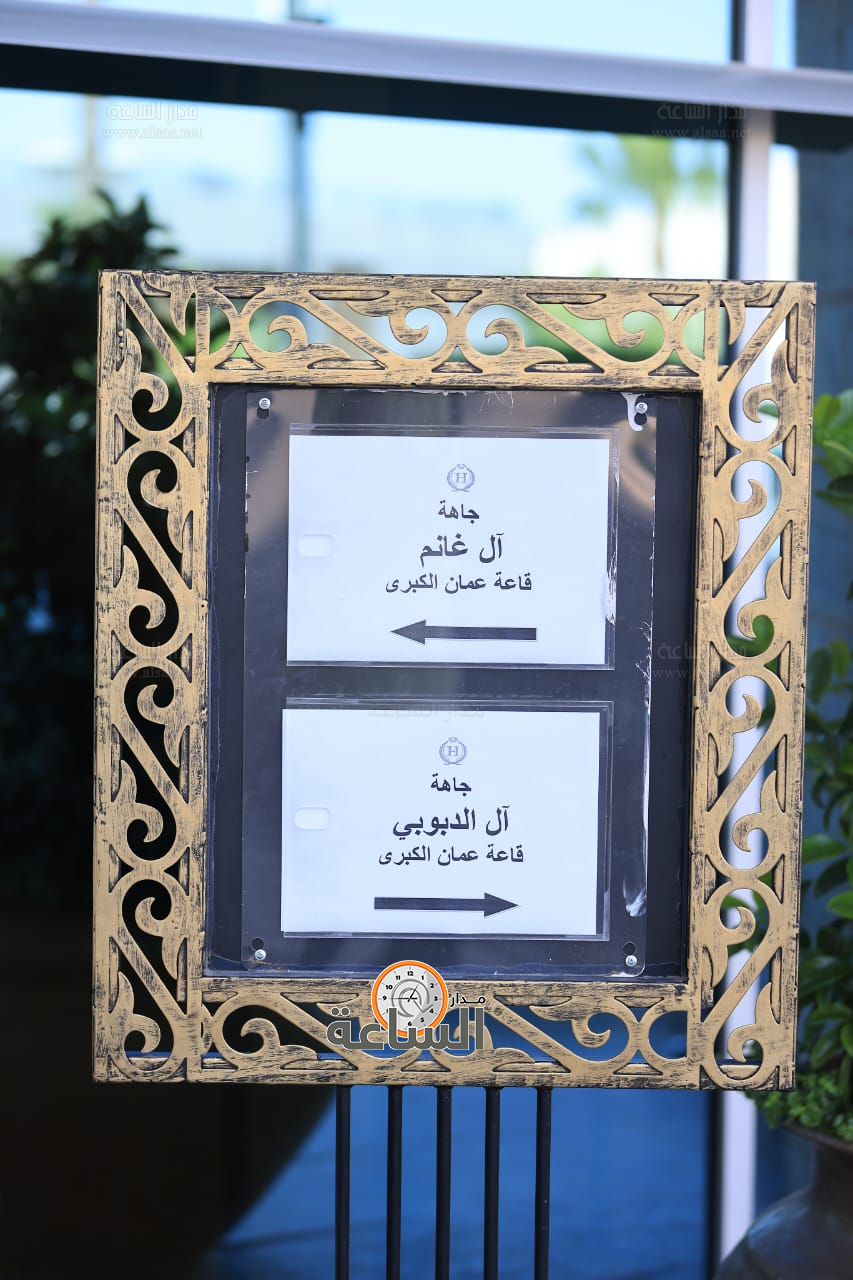 مدار الساعة
www.alsaa.net
مدار الساعة
www.alsaa.net
H
جاهة
آل غانم
قاعة عمان الكبرى
H
جاهة
آل الدبوبي
قاعة عمان الكبرى
مدار
الساعة